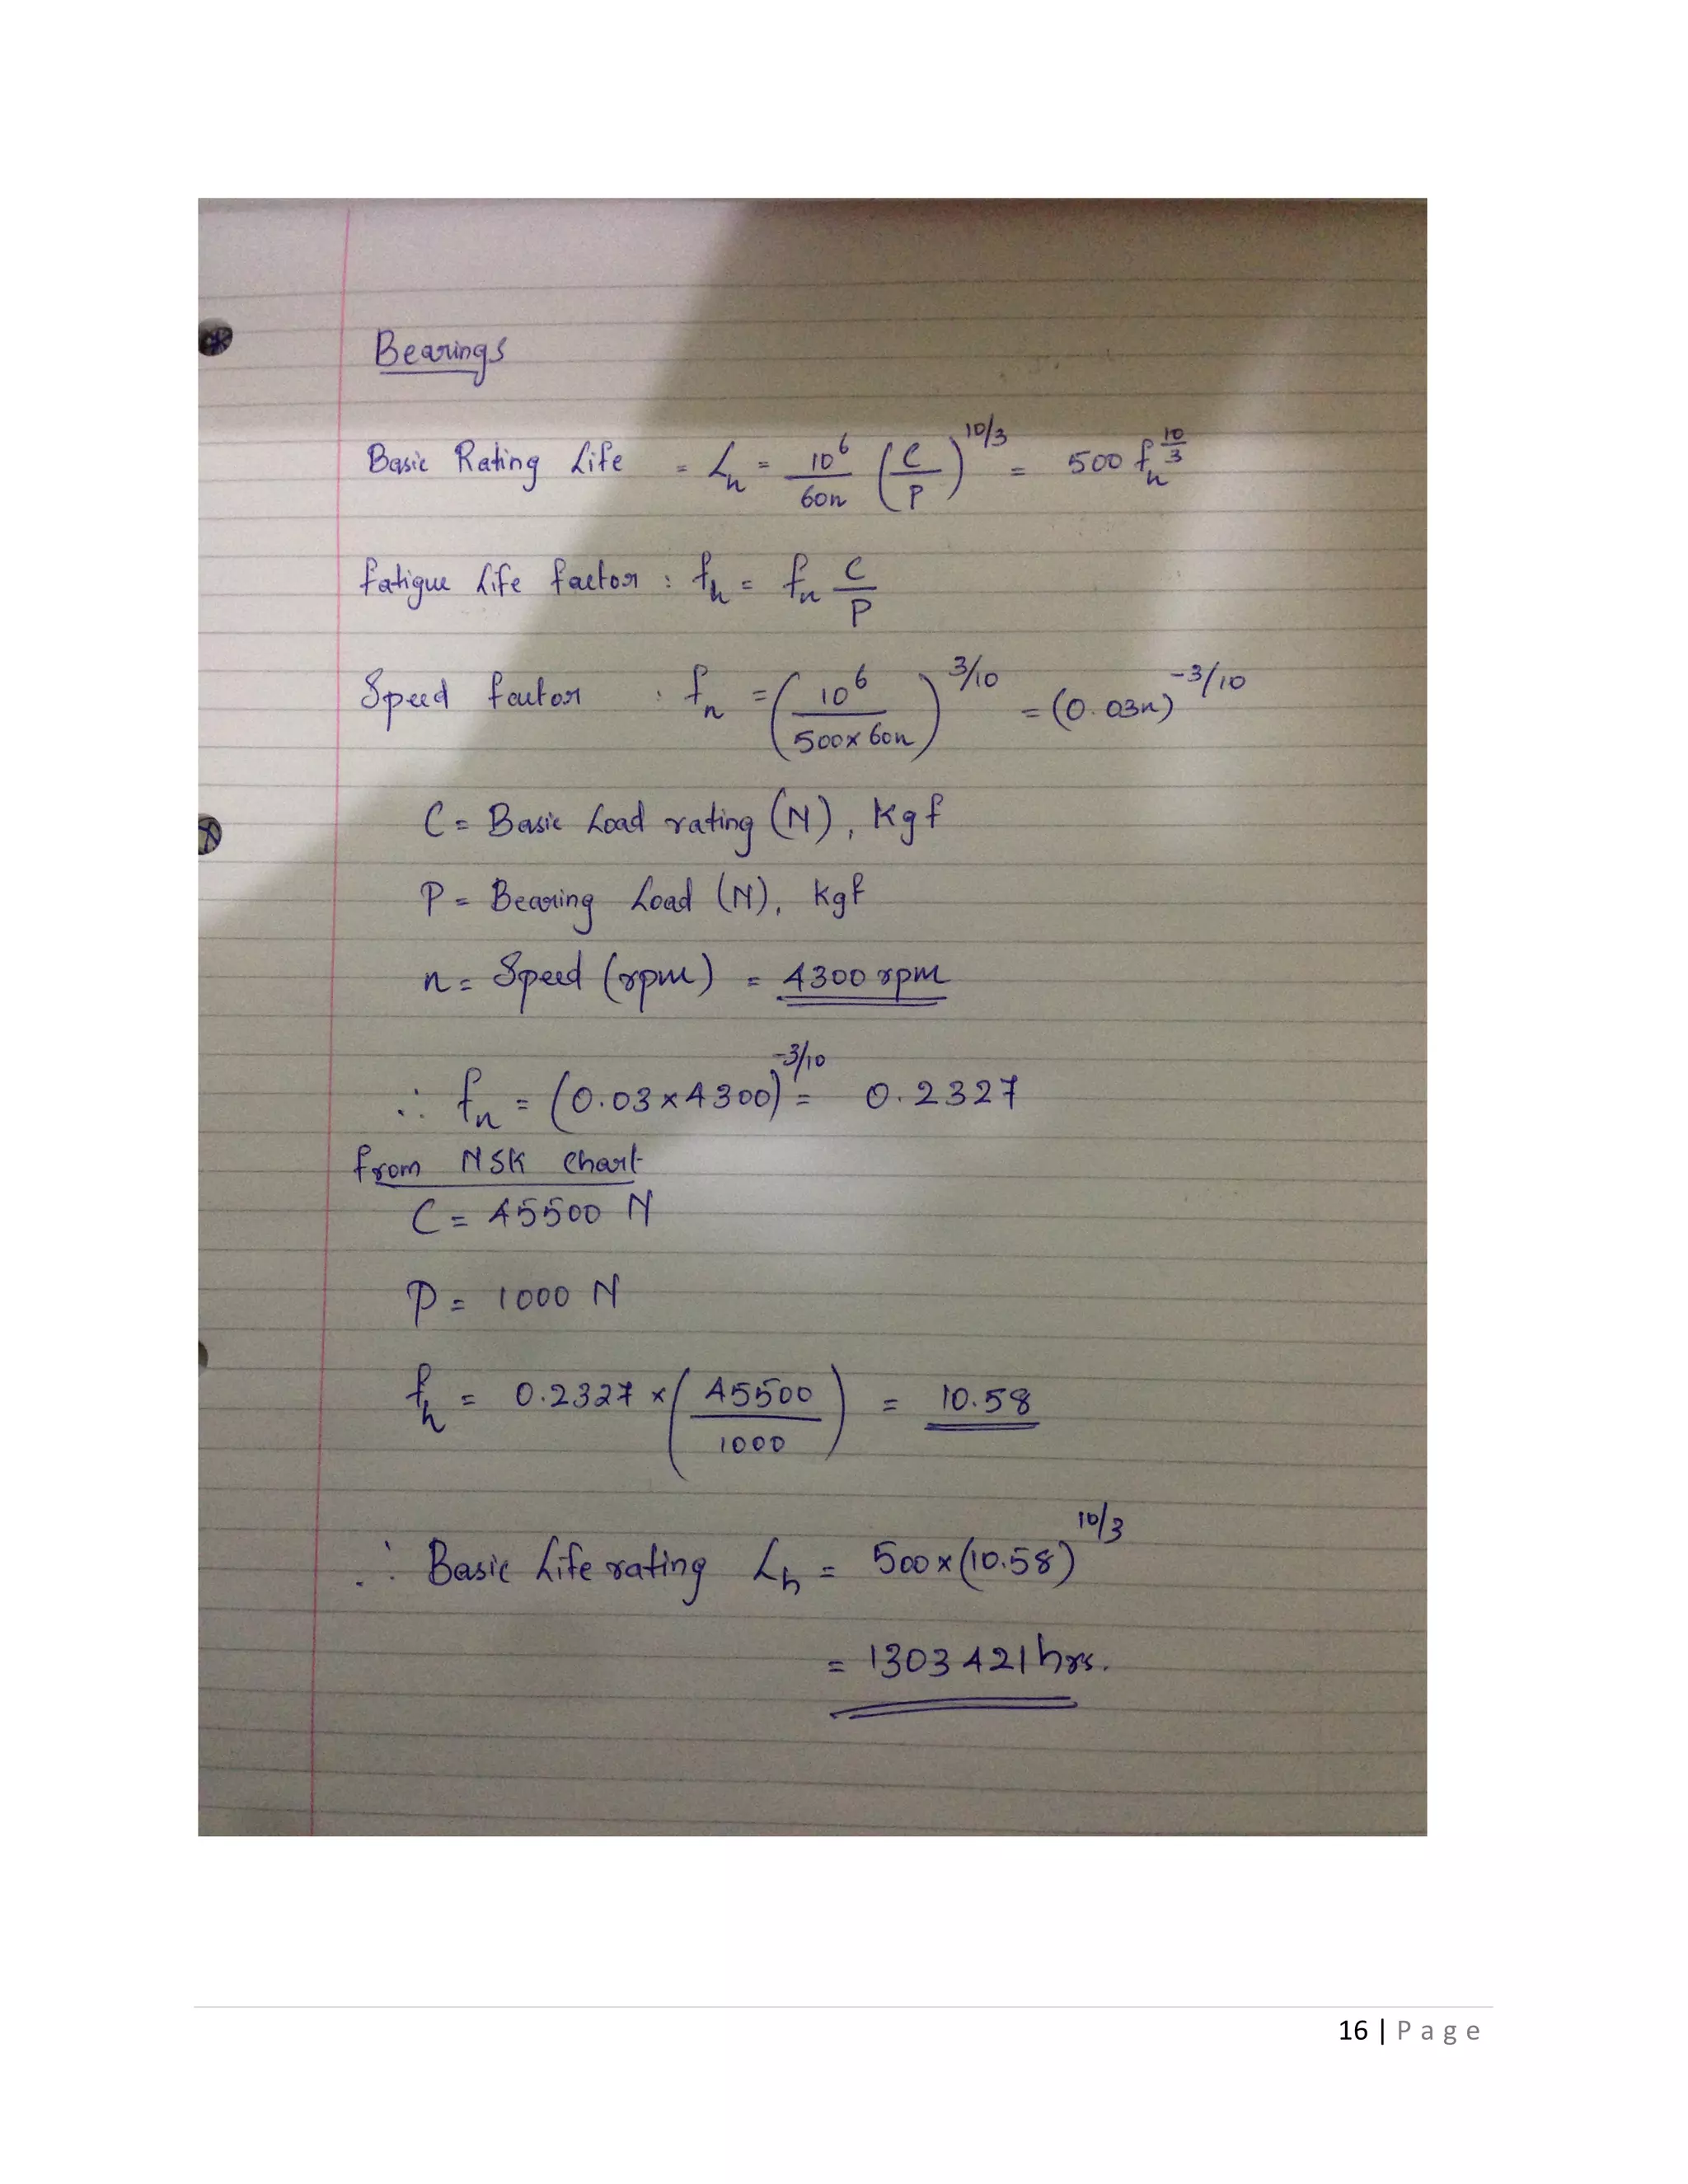 Bearings
Basic Rating Life = Lh = 10^6/60n (C/P)^10/3 = 500 fh^10/3
Fatigue Life factor : fh = fn C/P
Speed factor : fn = (10^6/500×60n)^3/10 = (0.03n)^-3/10
C = Basic Load rating (N), Kgf
P = Bearing Load (N), Kgf
n = Speed (rpm) = 4300 rpm
∴ fn = (0.03×4300)^-3/10 = 0.2327
from NSK Chart
C = 45500 N
P = 1000 N
fh = 0.2327 × (45500/1000) = 10.58
∴ Basic Life rating Lh = 500×(10.58)^10/3
= 1303421 hrs.
16 | Page